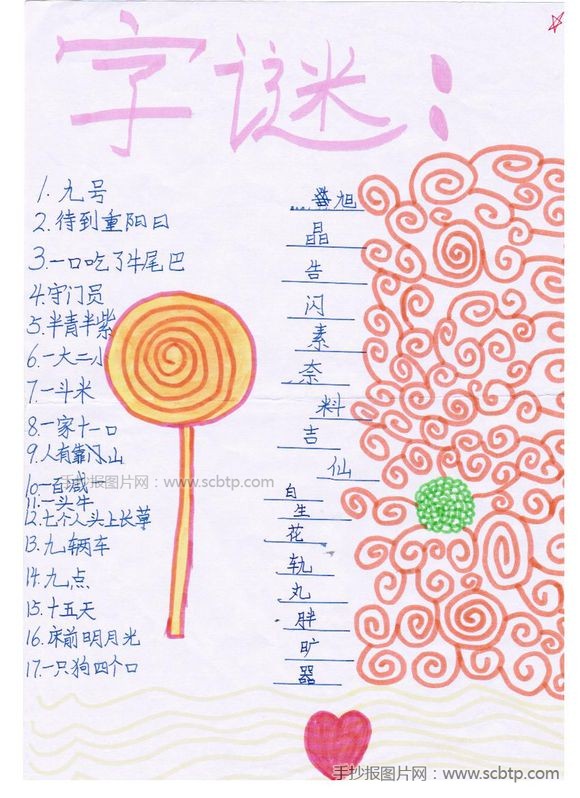 字谜:
1.九号
2.待到重阳日
3.一口吃了牛尾巴
4.守门员
5.半青半紫
6.一大二小
7.一斗米
8.一家十一口
9.人有靠山
10.一百减一
11.一头牛
12.七个人头上长草
13.九辆车
14.九点
15.十五天
16.床前明月光
17.一只狗四个口
旭
晶
告
闪
素
奈
料
吉
仙
白
生
花
轨
丸
胖
旷
器
手抄报图片网·www.scbtp.com
手抄报图片网·www.scbtp.com